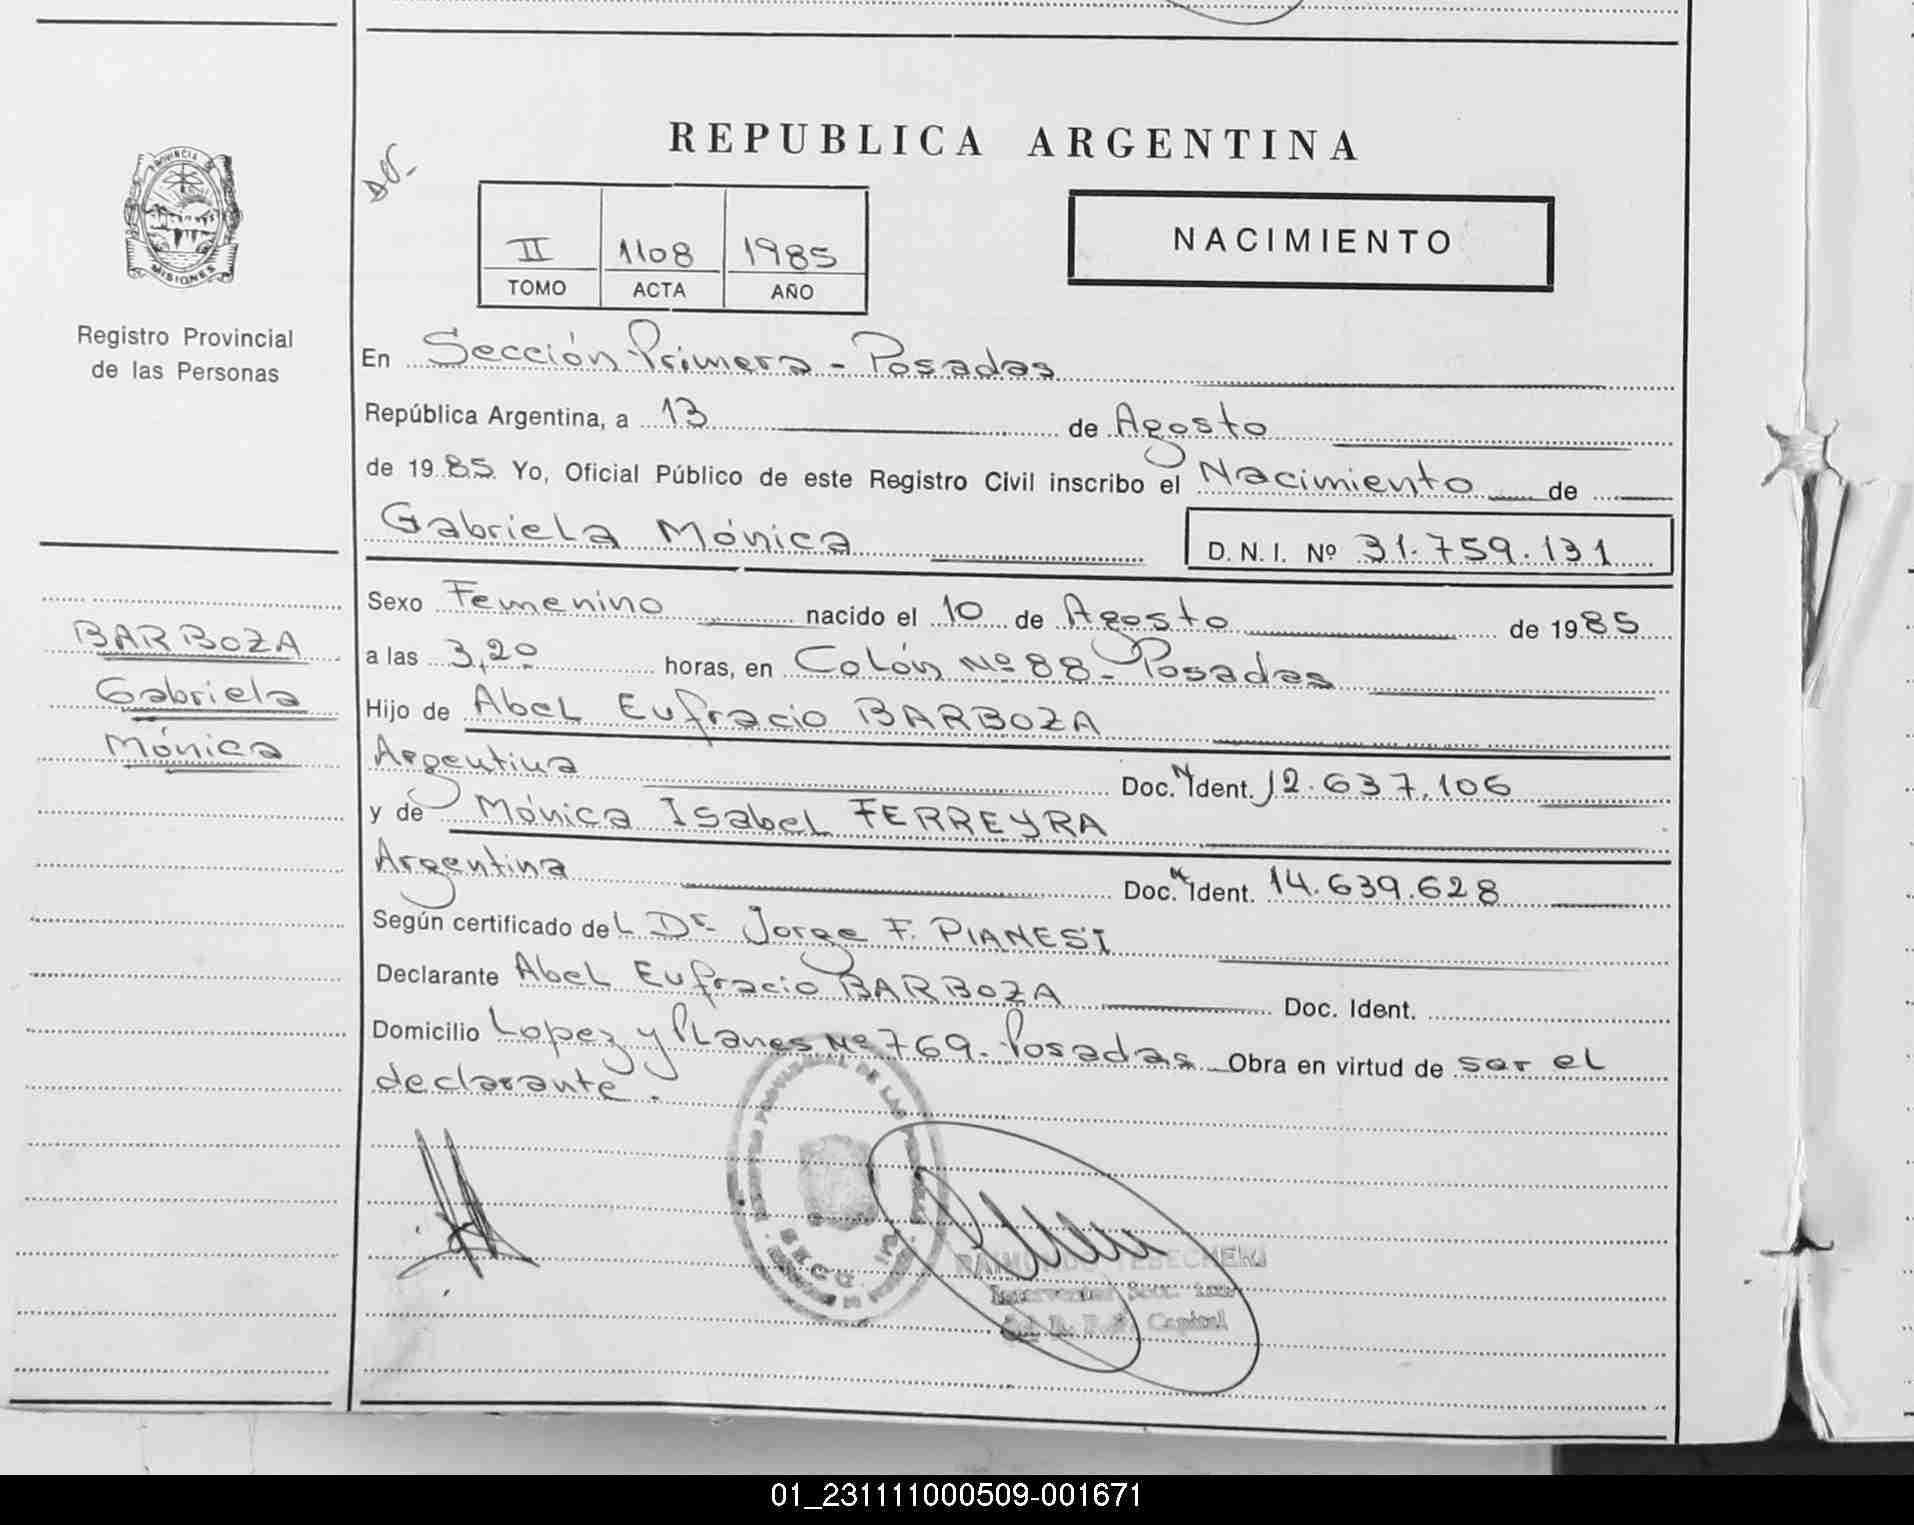 REPUBLICA ARGENTINA
PROVINCIA DE
MISIONES
II 1108 1985
TOMO ACTA AÑO
NACIMIENTO
Registro Provincial
de las Personas
En Sección Primera - Posadas
República Argentina, a 13 de Agosto
de 1985 Yo, Oficial Público de este Registro Civil inscribo el Nacimiento de
Gabriela Mónica D. N. I. Nº 31.759.131
Sexo Femenino nacido el 10 de Agosto de 1985
BARBOZA
Gabriela
Mónica
a las 3,20 horas, en Colón Nº 88 - Posadas
Hijo de Abel Eufracio BARBOZA
Argentina Doc. N Ident. 12.637.106
y de Mónica Isabel FERREYRA
Argentina Doc. N Ident. 14.639.628
Según certificado del Dr. Jorge F. PIANESI
Declarante Abel Eufracio BARBOZA Doc. Ident.
Domicilio Lopez y Planes Nº 769 - Posadas Obra en virtud de ser el
declarante.
Capital
01_231111000509-001671